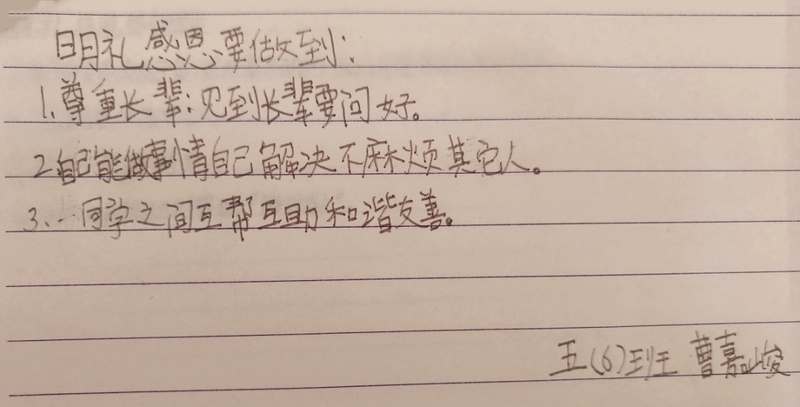 明礼感恩要做到:
1.尊重长辈:见到长辈要问好。
2自己能做事情自己解决不麻烦其它人。
3.··同学之间互帮互助和谐友善。
五(6)班 曹嘉峻